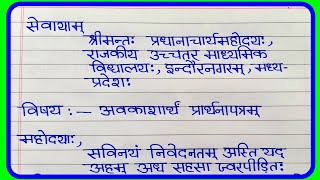 सेवायाम्
श्रीमन्तः प्रधानाचार्यमहोदयः,
राजकीय उच्चतर माध्यमिक
विद्यालयः, इन्दौरनगरम्, मध्य-
प्रदेशः
विषय :- अवकाशार्थं प्रार्थनापत्रम्
महोदयाः,
सविनयं निवेदनतम् अस्ति यद्
अहम् अद्य सहसा ज्वरपीड़ितः